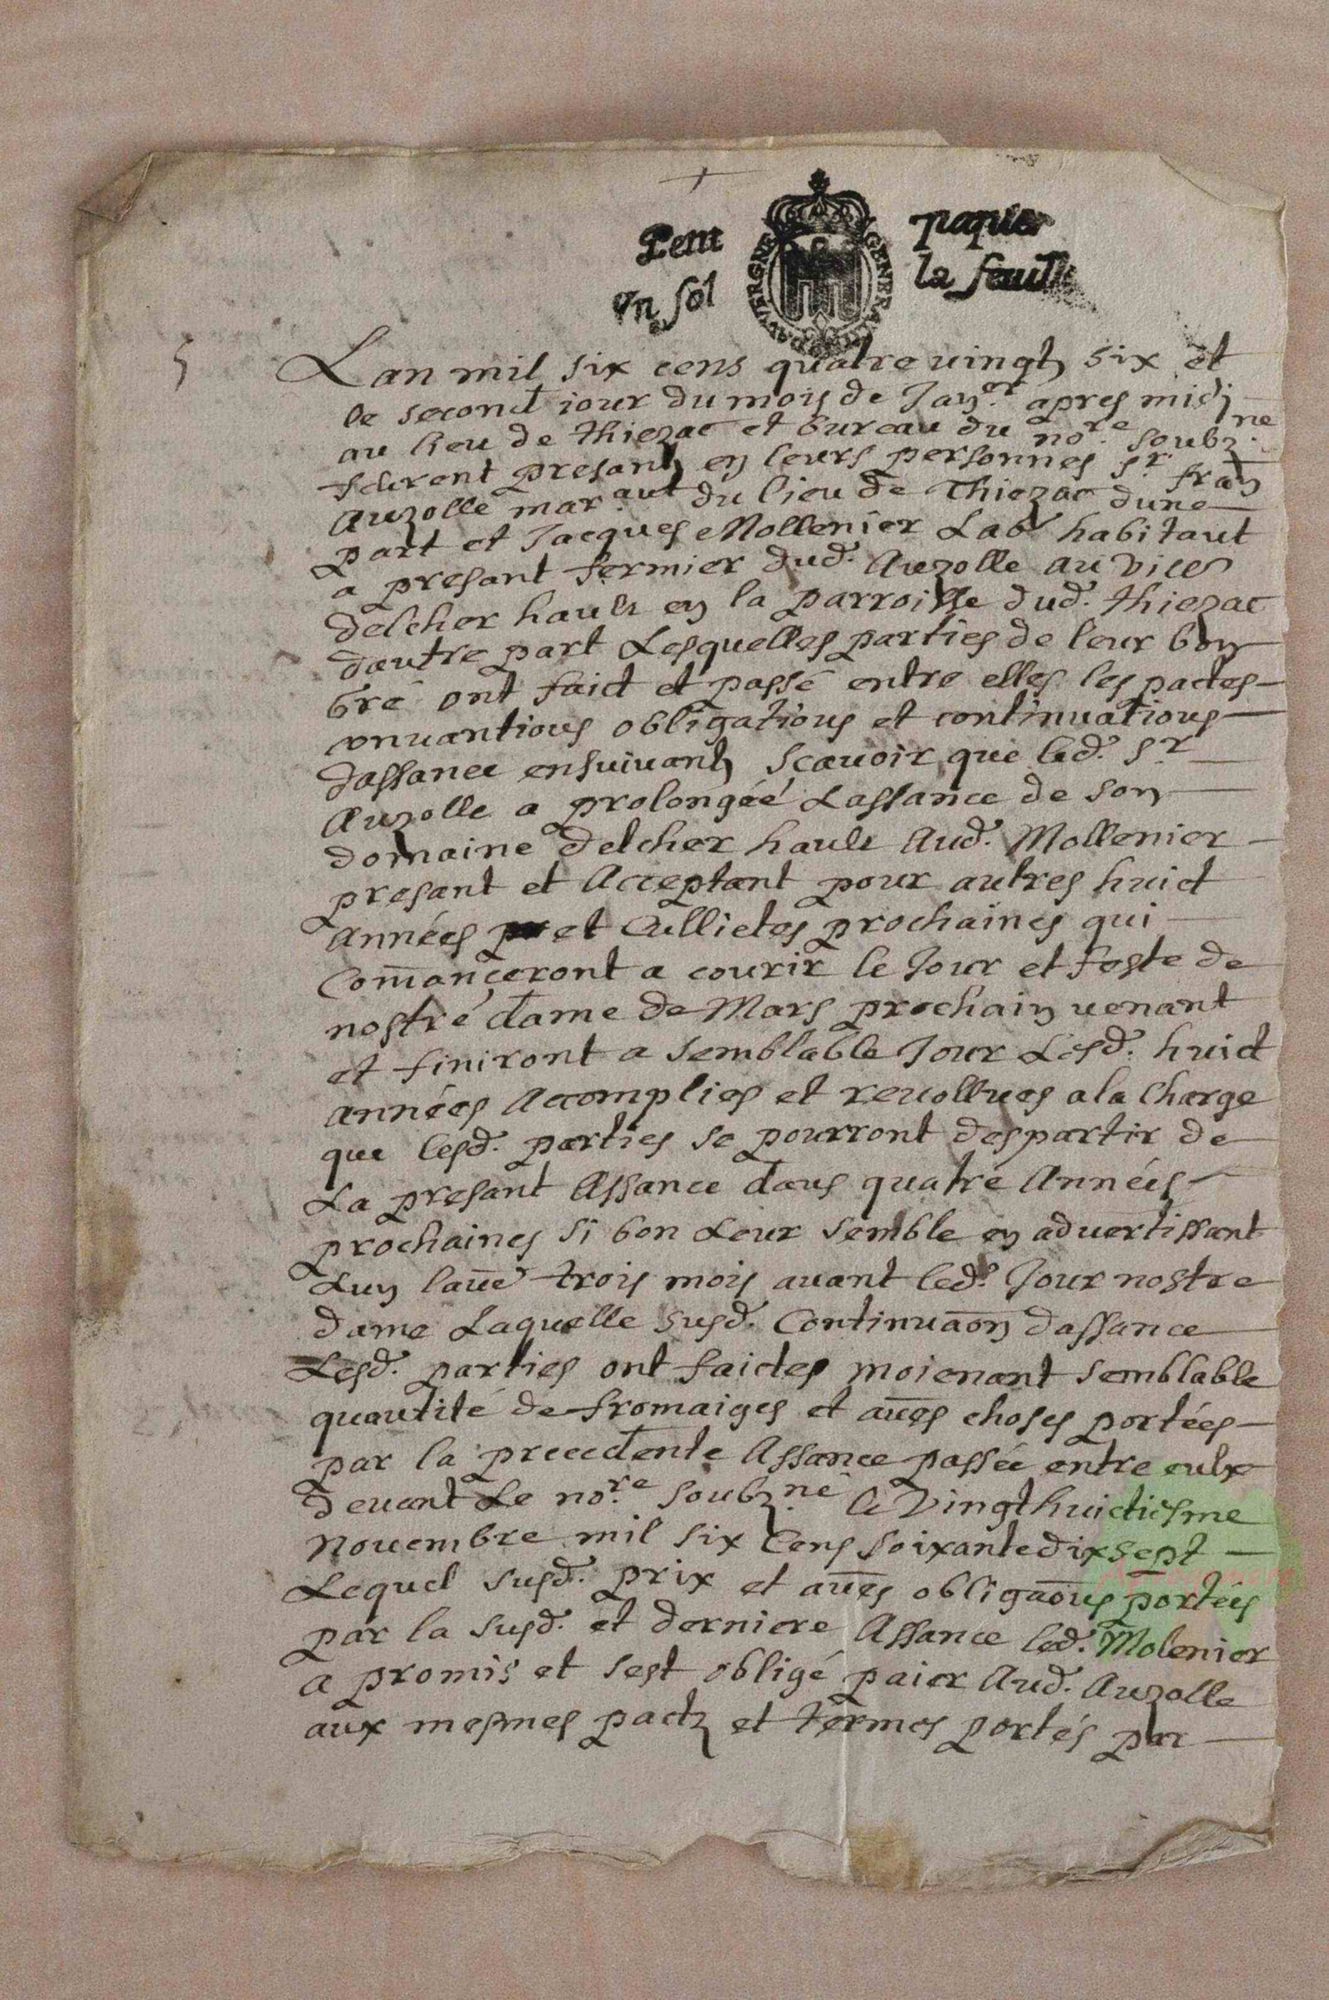 Petit papier
GENERALITE D'AUVERGNE
un sol la feuille
5
Lan mil six cens quatre vingtz six et
le second jour du mois de Janer. apres midj
au lieu de thiezac et bureau du nore. soubz.ne
furent presantz en leurs personnes sr fran
Auzolle mar.ant du lieu de Thiezac dune
part et Jacques Mollenier Labr habitant
a presant fermier dud. Auzolle au
delcher hault en la parroisse dud. thiezac
dautre part Lesquelles parties de leur bon
gré ont faict et passé entre elles les pactes
onuantions obligations et continuations
dassance ensuivantz scavoir que led. Sr
Auzolle a prolongéé Lassance de son
domaine delcher hault Aud. Mollenier
presant et Acceptant pour autres huict
Années et Cullietes prochaines qui
Com̄anceront a courir le Jour et feste de
nostre dame de Mars prochain venant
et finiront a semblable Jour Lesd. huict
années Accomplies et revollues a la Charge
que lesd. parties se pourront despartir de
La presant Assance dans quatre Années
prochaines si bon Leur semble en advertissant
Lun lau͞e trois mois avant led. Jour nostre
dame Laquelle susd. Continuaōn dassance
Lesd. parties ont faictes moienant semblable
quantité de fromaiges et au͞es choses portées
par la precedente Assance passée entre eulx
devant Le nore. soubz.né le Vingt huictiesme
Novembre mil six Cens soixante dix sept
Lequel susd. prix et au͞es obligaōns portées
par la susd. et derniere Assance led. Molenier
a promis et sest obligé paier Aud. Auzolle
aux mesmes pactz et termes portés par